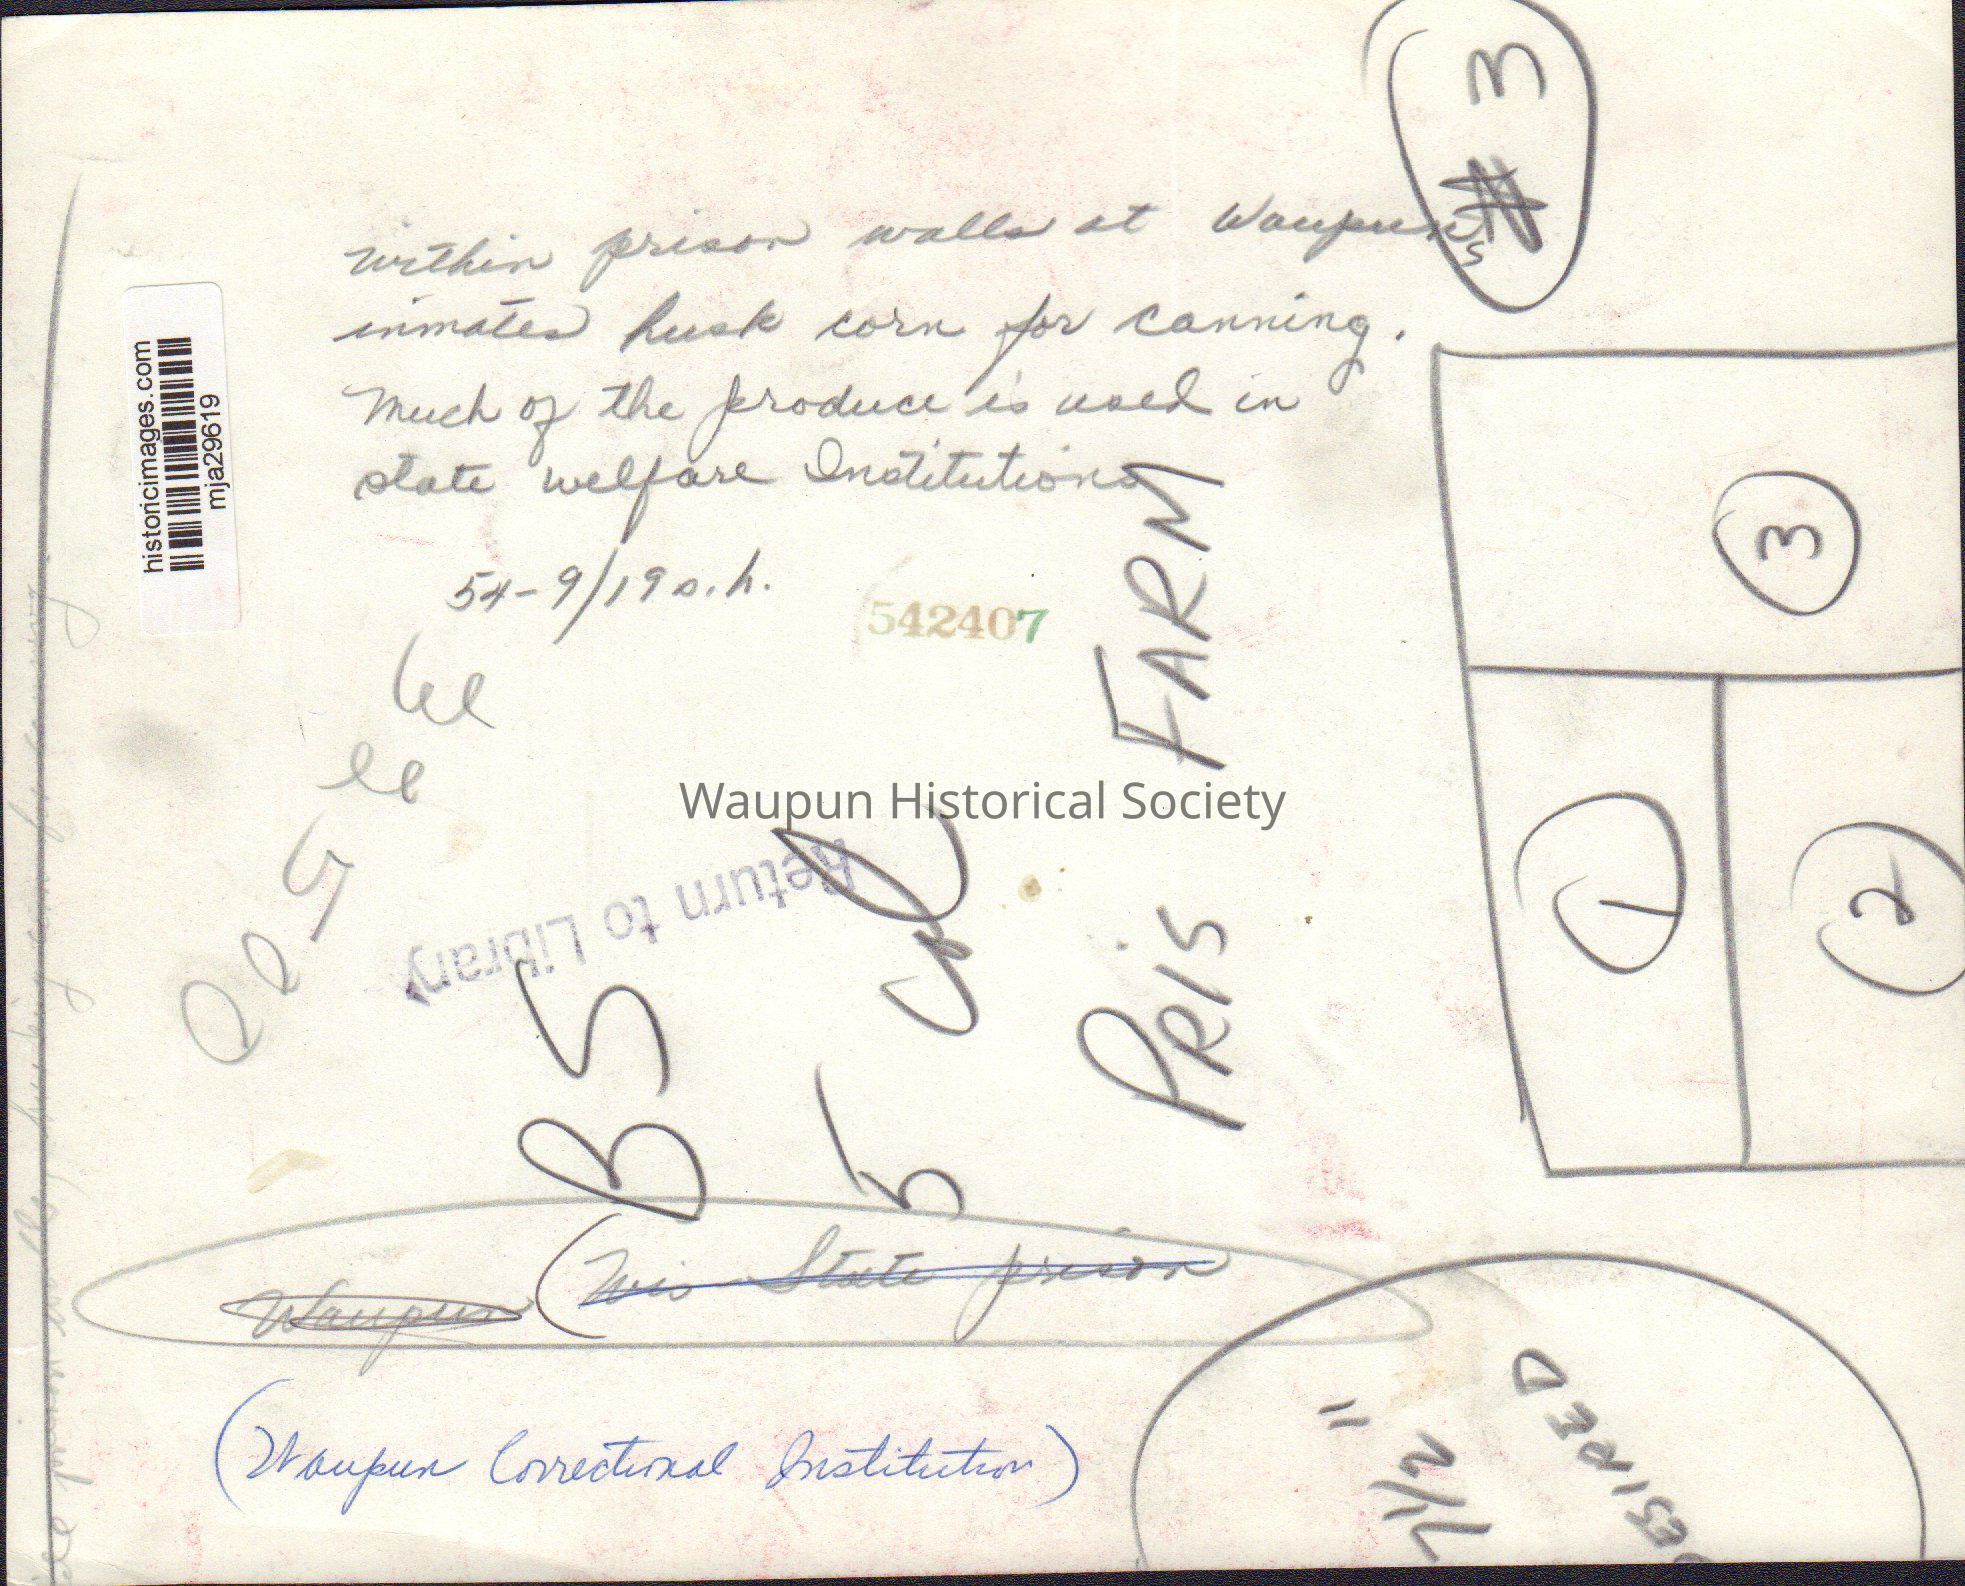 # 3
within prison walls at Waupun s
inmates husk corn for canning.
Much of the produce is used in
state welfare Institutions
54-9/19 s.h.
542407
historicimages.com
mja29619
3
1
2
PRIS FARM
Waupun Historical Society
Return to Library
BS
Waupun (Wis State prison
(Waupun Correctional Institution)
7 1/2 "
DESIRED